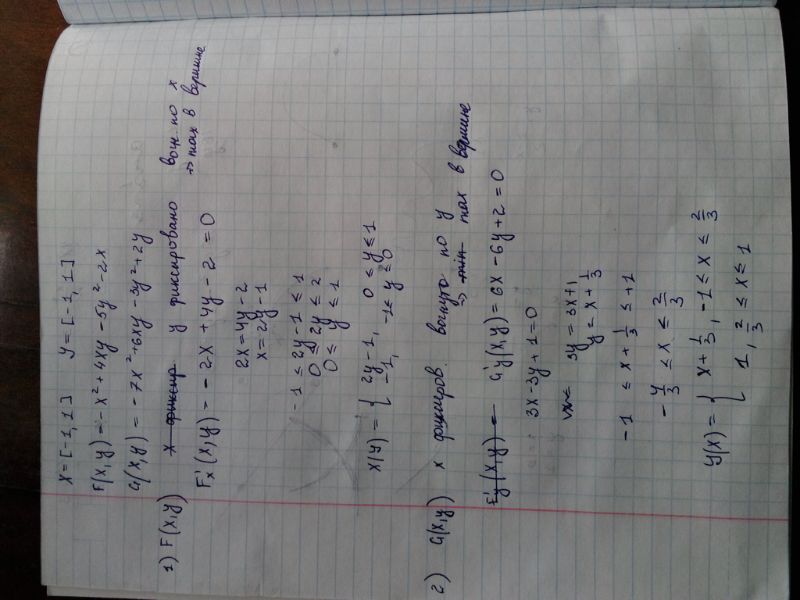 X = [-1, 1] Y = [-1, 1]
F(x,y) = -x² + 4xy - 5y² - 2x
G(x,y) = -7x² + 6xy - 3y² + 2y
1) F(x,y) x фиксир y фиксировано вогн. по x
⇒ max в вершине
F'x(x,y) = -2x + 4y - 2 = 0
2x = 4y - 2
x = 2y - 1
-1 ≤ 2y - 1 ≤ 1
0 ≤ 2y ≤ 2
0 ≤ y ≤ 1
X(y) = { 2y - 1, 0 ≤ y ≤ 1
-1, -1 ≤ y ≤ 0
2) G(x,y) x фиксиров. вогнуто по y
⇒ min max в вершине
F'y(x,y) = G'y(x,y) = 6x - 6y + 2 = 0
3x - 3y + 1 = 0
3y = 3x + 1
y = x + 1/3
-1 ≤ x + 1/3 ≤ +1
-4/3 ≤ x ≤ 2/3
Y(x) = { x + 1/3, -1 ≤ x ≤ 2/3
1, 2/3 ≤ x ≤ 1